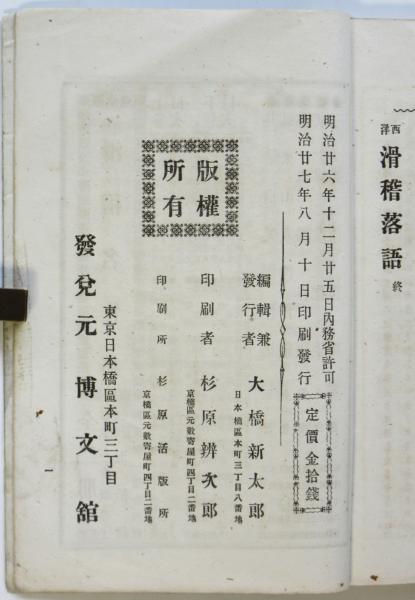 西洋滑稽落語 終
明治廿六年十二月廿五日內務省許可
明治廿七年八月十日印刷發行
定價金拾錢
版權所有
編輯兼發行者 大橋新太郎
日本橋區本町三丁目八番地
印刷者 杉原辨次郎
京橋區元數寄屋町四丁目二番地
印刷所 杉原活版所
京橋區元數寄屋町四丁目二番地
東京日本橋區本町三丁目
發兌元 博文舘
一